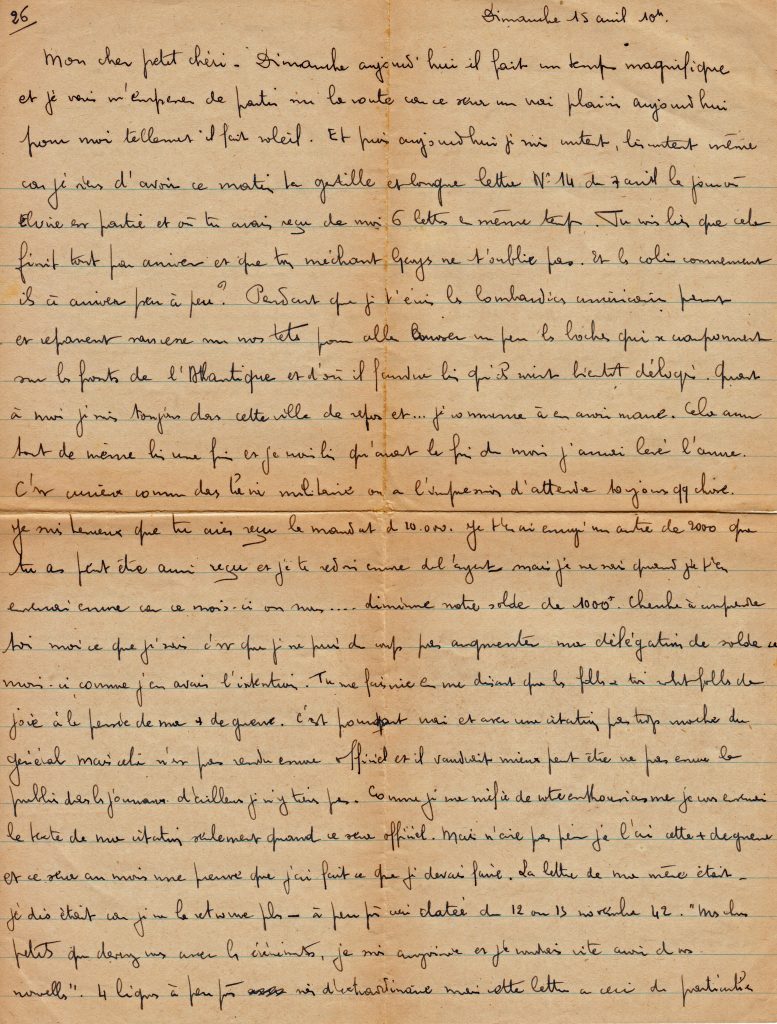 26
Dimanche 15 avril 10h.
Mon cher petit chéri - Dimanche aujourd'hui il fait un temps magnifique
et je vais m'empresser de partir sur la route car ce sera un vrai plaisir aujourd'hui
pour moi tellement il fait soleil. Et puis aujourd'hui je suis content, bien content même
car je viens d'avoir ce matin ta gentille et longue lettre N° 14 du 7 avril le jour où
Elvire est partie et où tu avais reçu de moi 6 lettres en même temps. Tu vois bien que cela
finit tout par arriver et que ton méchant Guys ne t'oublie pas. Et les colis commencent
ils à arriver peu à peu ? Pendant que je t'écris les bombardiers américains passent
et repassent sans cesse sur nos têtes pour aller les boches qui se cramponnent
sur les fronts de l'Atlantique et d'où il faudra bien qu'ils soient bientôt délogés. Quant
à moi je suis toujours dans cette ville de repos et... je commence à en avoir marre. Cela aura
tout de même bien une fin et je crois bien qu'avant la fin du mois j'aurai levé l'ancre.
C'est curieux comme dans la vie militaire on a l'impression d'attendre toujours qq chose.
Je suis heureux que tu aies reçu le mandat de 10.000. Je t'en ai envoyé un autre de 2000 que
tu as peut être aussi reçu et je te redois encore de l'argent mais je ne sais quand je t'en
enverrai encore car ce mois-ci on nous .... diminue notre solde de 1000f. Cherche à comprendre
toi moi ce que je sais c'est que je ne puis du coup pas augmenter ma délégation de solde ce
mois-ci comme j'en avais l'intention. Tu me fais rire en me disant que les folles et toi sont folles de
joie à la pensée de ma + de guerre. C'est pourtant vrai et avec une citation pas trop moche du
général mais cela n'est pas rendu encore officiel et il vaudrait mieux peut être ne pas encore le
publier dans les journaux d'ailleurs je n'y tiens pas. Comme je me méfie de votre enthousiasme je vous enverrai
le texte de ma citation seulement quand ce sera officiel. Mais n'aie pas peur je l'ai cette + de guerre
et ce sera au moins une preuve que j'ai fait ce que je devais faire. La lettre de ma mère était -
je dis était car je ne la retrouve plus - à peu près ceci datée du 12 ou 13 novembre 42. "Mes chers
petits que devenez vous avec les événements, je suis angoissée et je voudrais vite avoir de vos
nouvelles". 4 lignes à peu près rien d'extraordinaire mais cette lettre a ceci de particulier